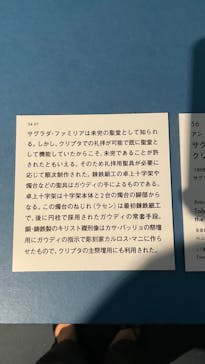 54-57
サグラダ・ファミリアは未完の聖堂として知られ
る。しかし、クリプタでの礼拝が可能で既に聖堂と
して機能していたからこそ、未完であることが許
されたともいえる。そのため礼拝用聖具が必要に
応じて順次制作された。錬鉄細工の卓上十字架や
燭台などの聖具はガウディの手によるものである。
卓上十字架は十字架本体と2台の燭台の脚部から
なる。この燭台のねじれ（ラセン）は最初錬鉄細工
で、後に円柱で採用されたガウディの常套手段。
銅・鋳鉄製のキリスト磔刑像はカサ・バッリョの祭壇
用にガウディの指示で彫刻家カルロス・マニに作ら
せたもので、クリプタの主祭壇用にも利用された。
アン
サグ
クリ